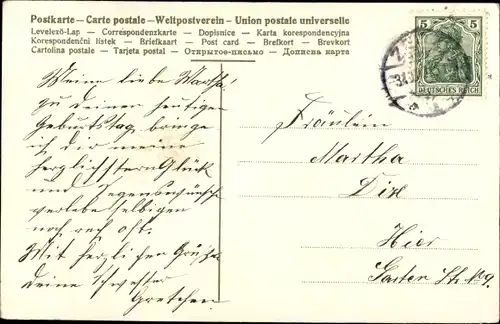 Postkarte – Carte postale – Weltpostverein – Union postale universelle
Levelező-Lap — Correspondenzkarte — Dopisnice — Karta korespondencyjna
Korespondenční lístek — Briefkaart — Post card — Brefkort — Brevkort
Cartolina postale — Tarjeta postal — Открытое-письмо — Дописна карта
5 5
DEUTSCHES REICH
Meine liebe Martha!
zu Deiner heutigen
Geburtstag bringe
ich dir meine
herzlichsten Glück
und Segenswünsche
verlebe selbigen
noch recht oft.
Mit herzlichen Grüßen
Deine Schwester
Gretchen
Fräulein
Martha
Hier